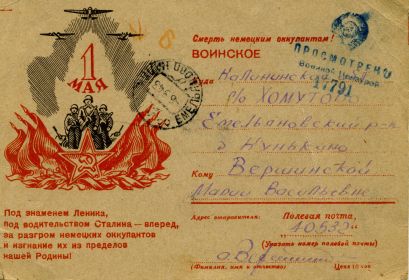 1
МАЯ
Под знаменем Ленина,
под водительством Сталина — вперед,
за разгром немецких оккупантов
и изгнание их из пределов
нашей Родины!
Смерть немецким оккупантам!
ВОИНСКОЕ
ПРОСМОТРЕНО
Военной Цензурой
17791
Куда Калининская
п/о Хомутово
Емельяновский р-н
д Нунькино
Кому Вершинской
Марии Васильевне
Адрес отправителя: Полевая почта,
40539
(Указать номер полевой почты)
(Фамилия, имя и отчество) Цена 10 коп